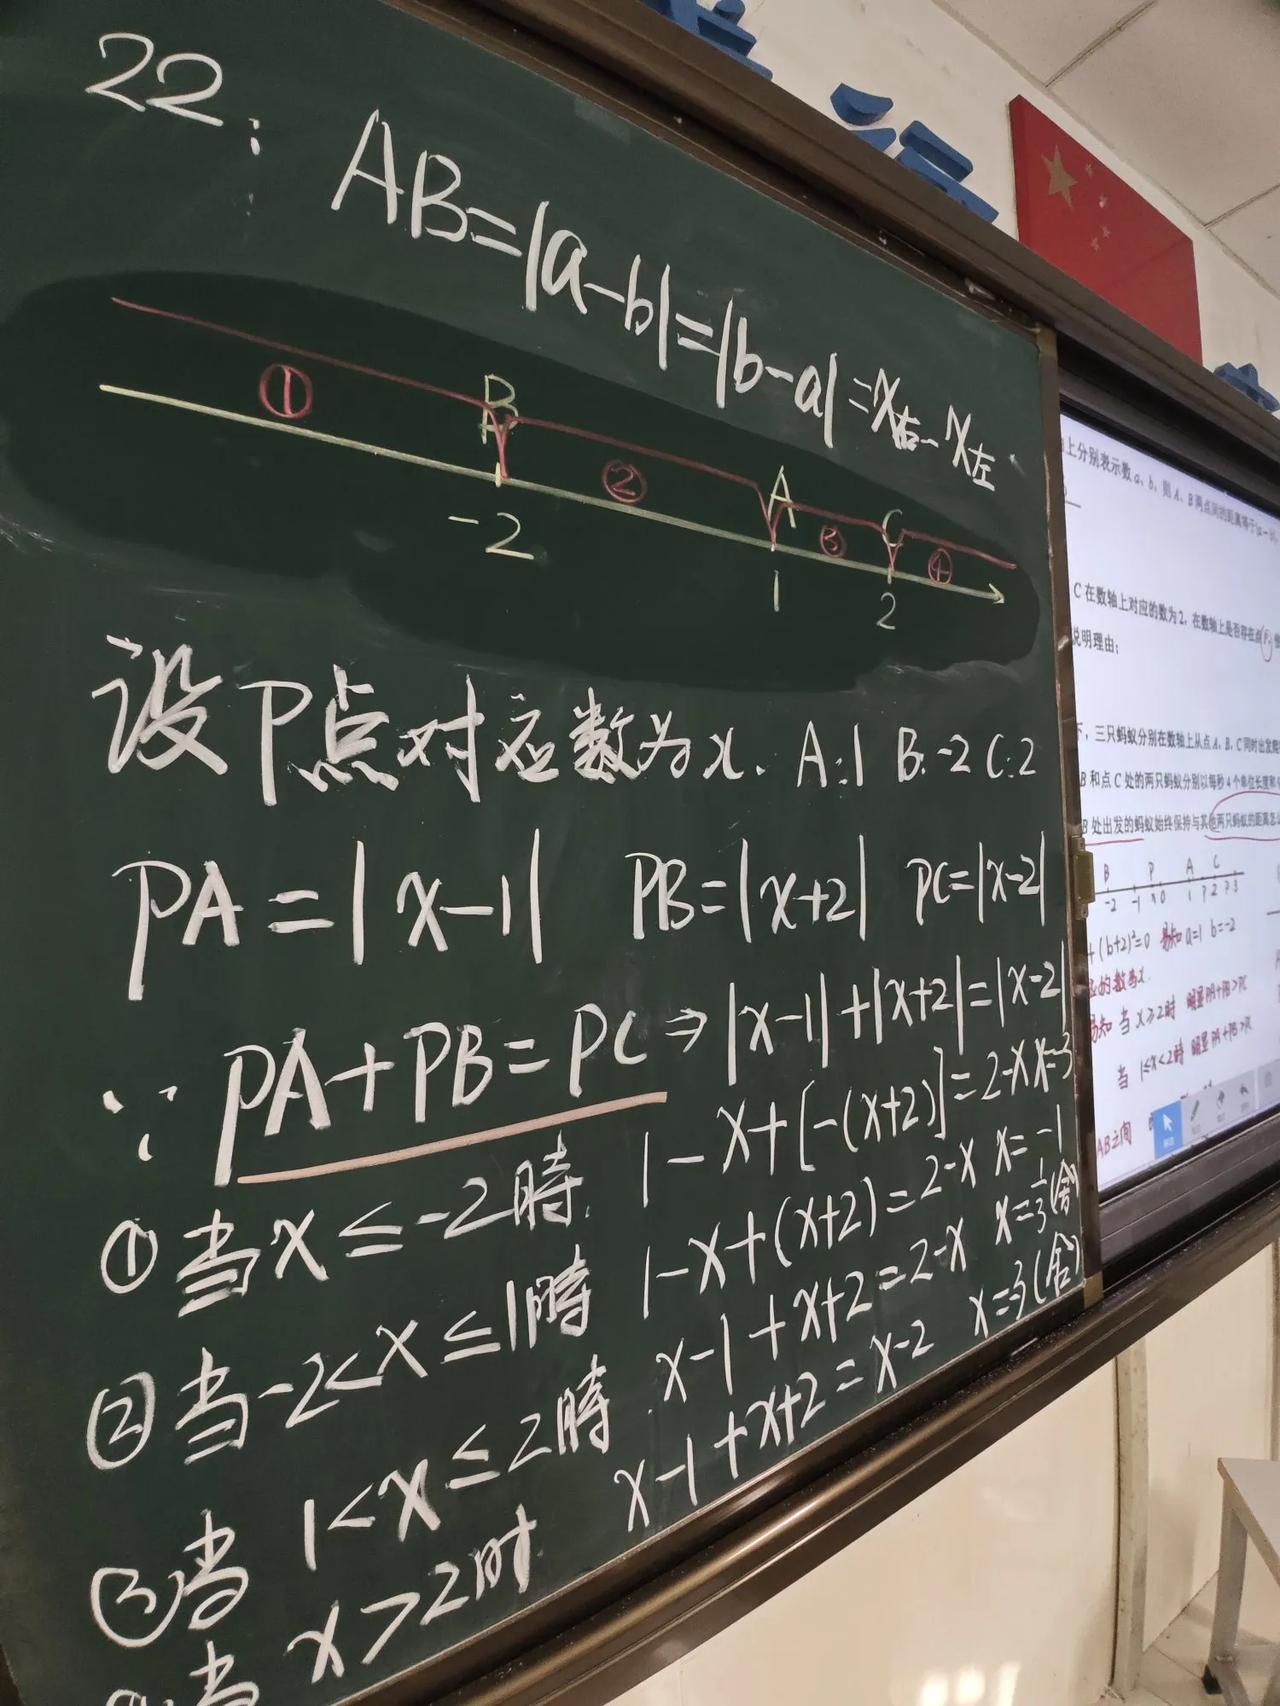 22:
AB=|a-b|=|b-a|=x右-x左
① B ② A ③ C ④
-2 1 2
设P点对应数为x. A:1 B:-2 C:2
PA=|x-1| PB=|x+2| PC=|x-2|
∵PA+PB=PC⇒|x-1|+|x+2|=|x-2|
①当x≤-2時 1-x+[-(x+2)]=2-x x=-3
②当-2<x≤1時 1-x+(x+2)=2-x x=-1
③当1<x≤2時 x-1+x+2=2-x x=1/3(舍)
当x>2时 x-1+x+2=x-2 x=-3(舍)
上分别表示数a、b,则A、B两点间的距离等于
C在数轴上对应的数为2,在数轴上是否存在点P
说明理由;
下,三只蚂蚁分别在数轴上从点A、B、C同时出发
B和点C处的两只蚂蚁分别以每秒4个单位长度和
B处出发的蚂蚁始终保持与其他两只蚂蚁的距离
B P A C
-2 -1 x 0 1 P 2 P 3
+(b+2)²=0 易知a=1 b=-2
应的数为x.
易知 当x≥2时 明显PA+PB>PC
当1≤x<2时 明显PA+PB>PC
AB之间